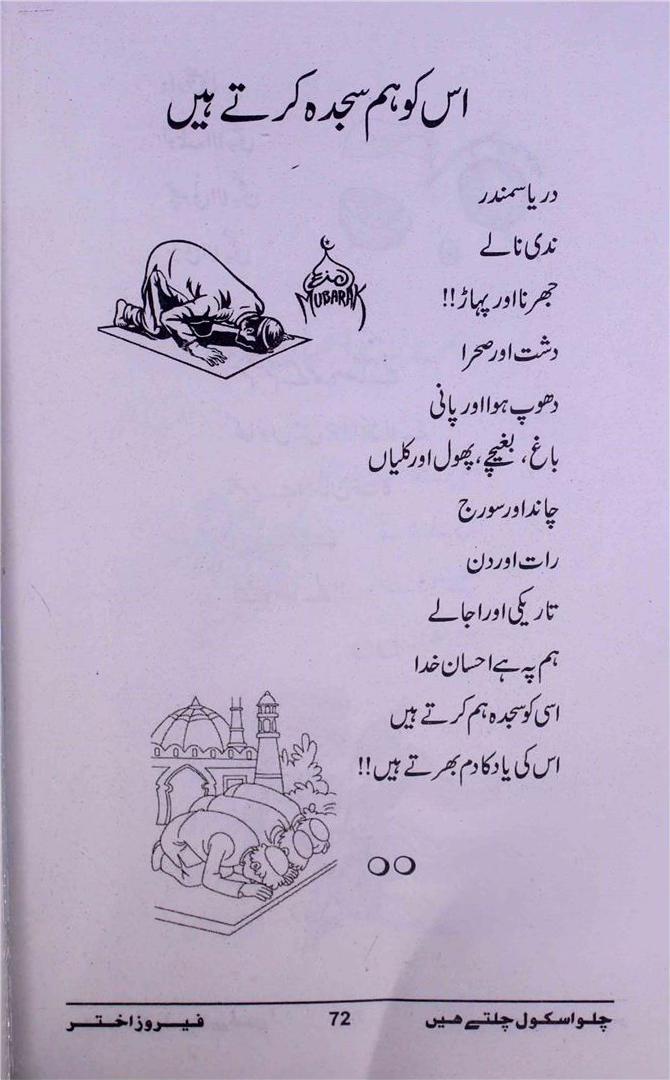 اس کو ہم سجدہ کرتے ہیں
دریا سمندر
ندی نالے
جھرنا اور پہاڑ!!
دشت اور صحرا
دھوپ ہوا اور پانی
باغ، بغیچے، پھول اور کلیاں
چاند اور سورج
رات اور دن
تاریکی اور اجالے
ہم پہ ہے احسان خدا
اسی کو سجدہ ہم کرتے ہیں
اس کی یاد کا دم بھرتے ہیں!!
MUBARAK
چلو اسکول چلتے ھیں 72 فیروز اختر